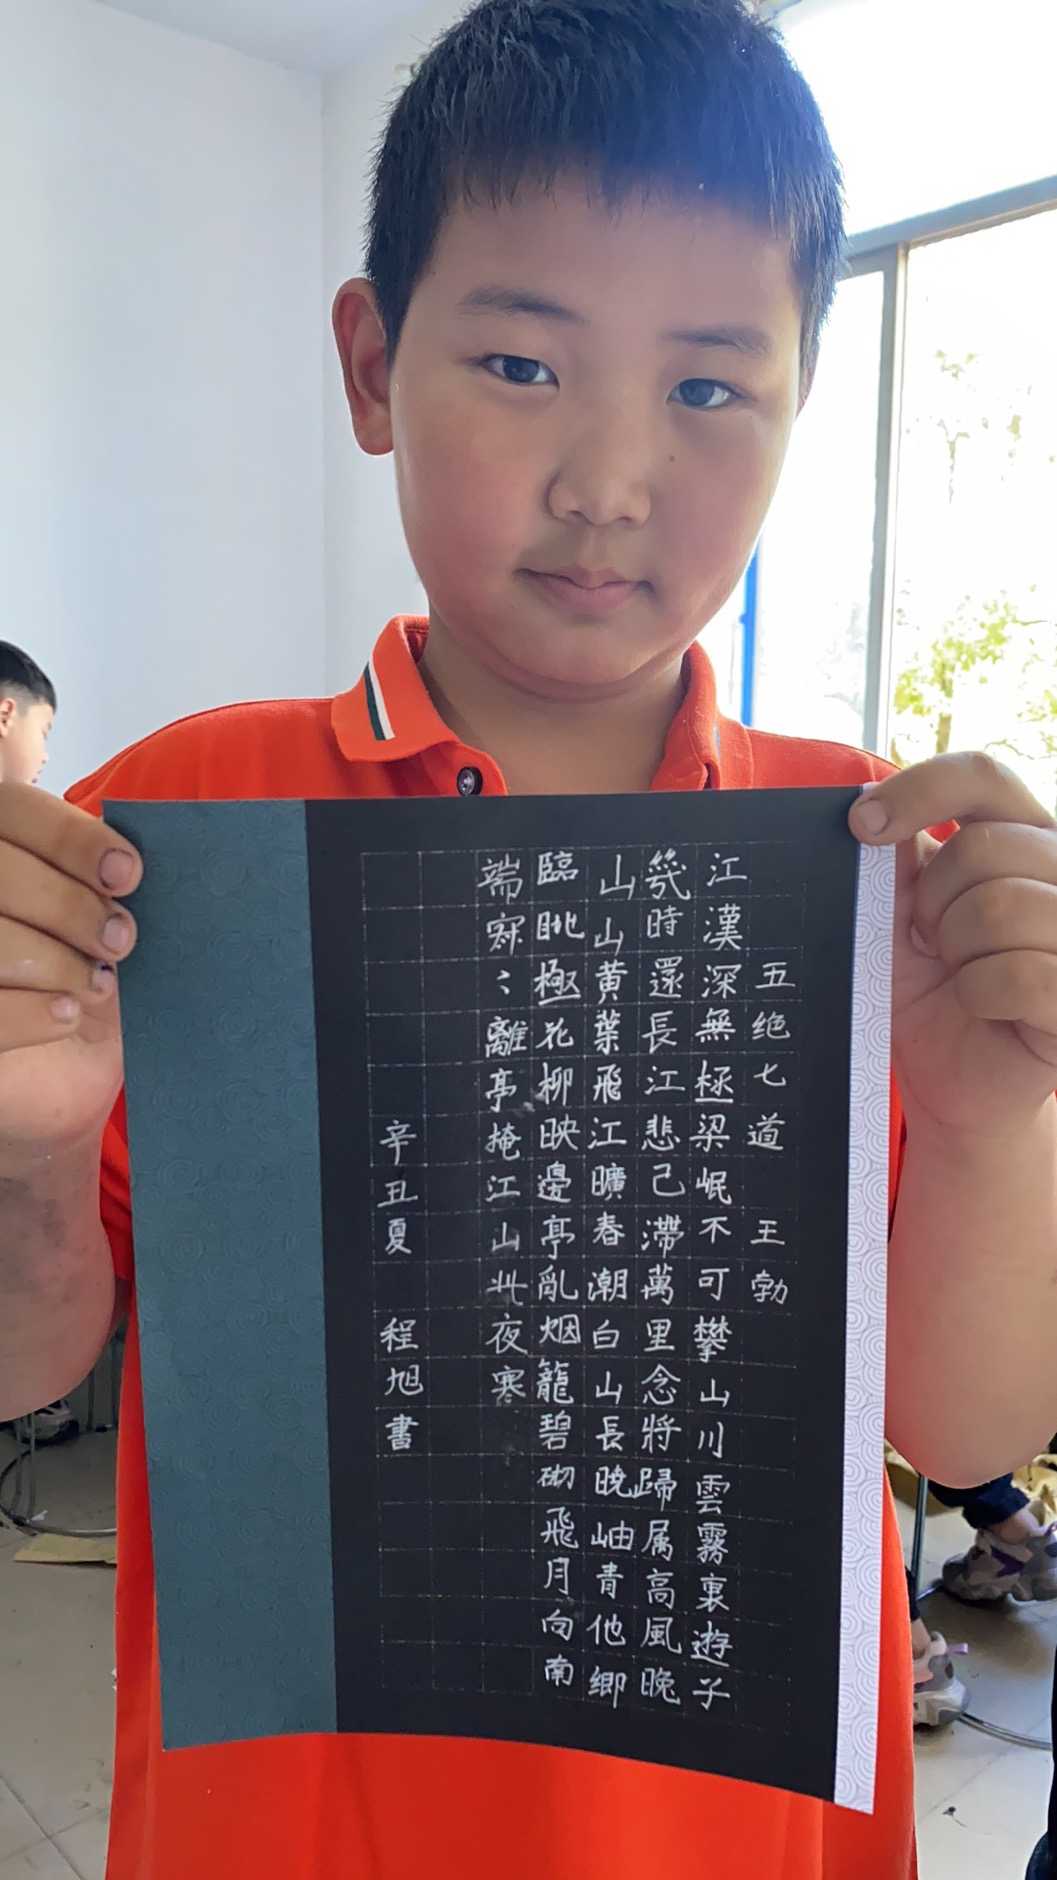 五绝七道 王勃
江漢深無極梁岷不可攀山川雲霧裏遊子
幾時還長江悲己滯萬里念將歸属高風晚
山山黄葉飛江曠春潮白山長曉岫青他鄉
臨眺極花柳映邊亭亂烟籠碧砌飛月向南
端寂〻離亭掩江山此夜寒
辛丑夏 程旭書